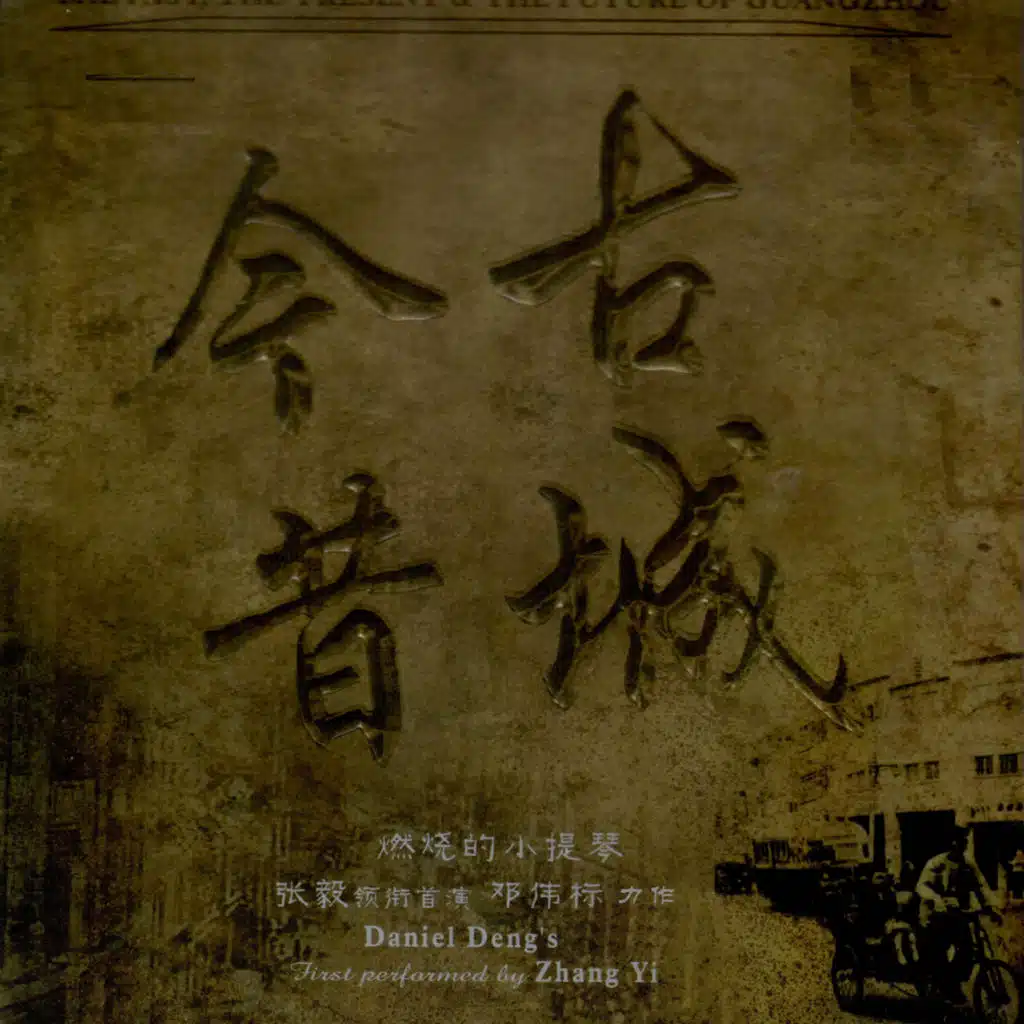 THE PAST, THE PRESENT & THE FUTURE OF GUANGZHOU
古城
今昔
燃烧的小提琴
张毅领衔首演 邓伟标 力作
Daniel Deng's
First performed by Zhang Yi